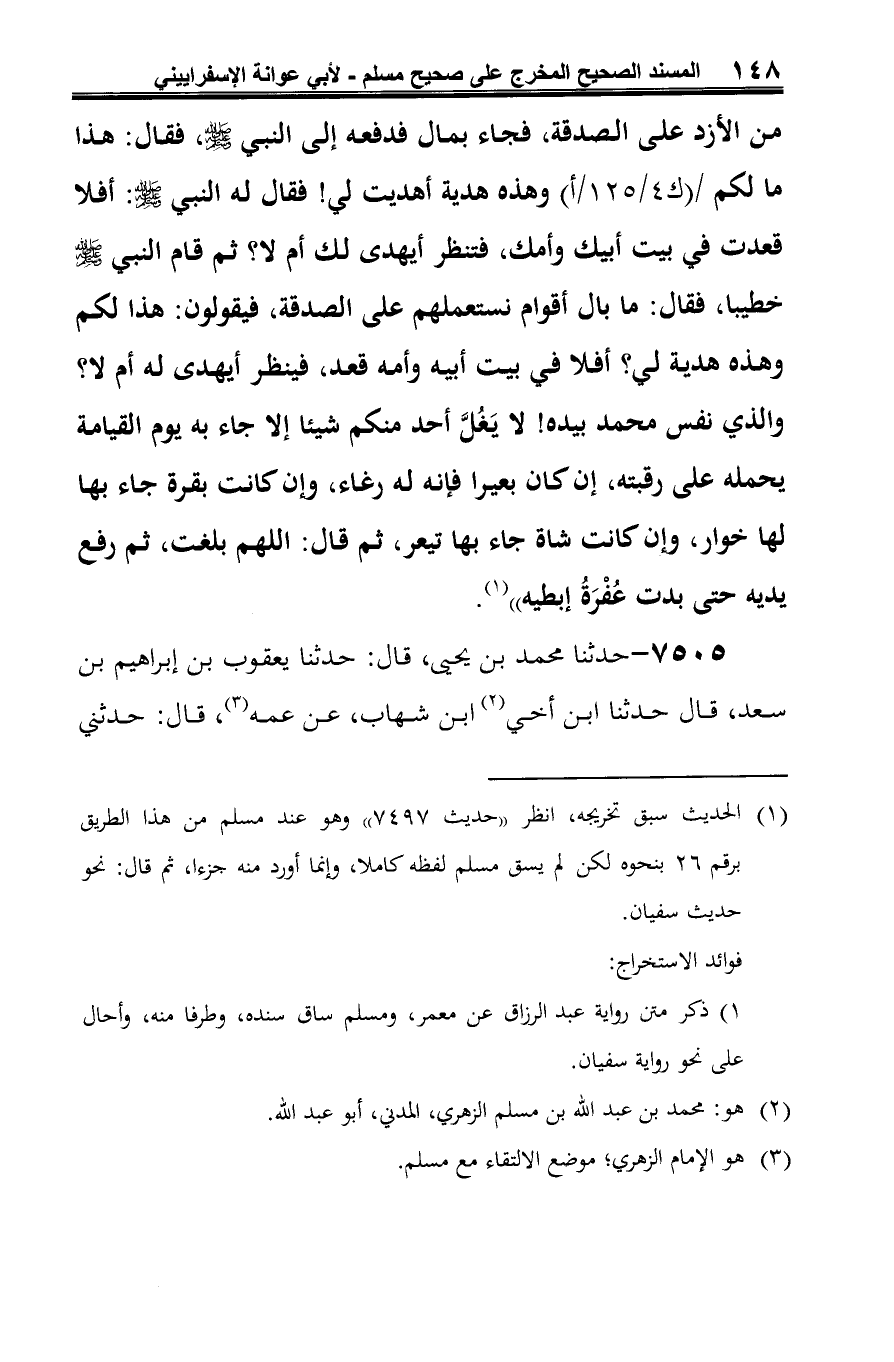 ١٤٨ المسند الصحيح المخرج على صحيح مسلم - لأبي عوانة الإسفراييني
من الأزد على الصدقة، فجاء بمال فدفعه إلى النبي ﷺ، فقال: هذا
ما لكم /(ك٤/١٢٥/أ) وهذه هدية أهديت لي! فقال له النبي ﷺ: أفلا
قعدت في بيت أبيك وأمك، فتنظر أيهدى لك أم لا؟ ثم قام النبي ﷺ
خطيبا، فقال: ما بال أقوام نستعملهم على الصدقة، فيقولون: هذا لكم
وهذه هدية لي؟ أفلا في بيت أبيه وأمه قعد، فينظر أيهدى له أم لا؟
والذي نفس محمد بيده! لا يَغُلَّ أحد منكم شيئا إلا جاء به يوم القيامة
يحمله على رقبته، إن كان بعيرا فإنه له رغاء، وإن كانت بقرة جاء بها
لها خوار، وإن كانت شاة جاء بها تيعر، ثم قال: اللهم بلغت، ثم رفع
يديه حتى بدت عُفْرَةُ إبطيه))(١).
٧٥٠٥-حدثنا محمد بن يحيى، قال: حدثنا يعقوب بن إبراهيم بن
سعد، قال حدثنا ابن أخي(٢) ابن شهاب، عن عمه(٣)، قال: حدثني
(١) الحديث سبق تخريجه، انظر ((حديث ٧٤٩٧)) وهو عند مسلم من هذا الطريق
برقم ٢٦ بنحوه لكن لم يسق مسلم لفظه كاملا، وإنما أورد منه جزءا، ثم قال: نحو
حديث سفيان.
فوائد الاستخراج:
١) ذكر متن رواية عبد الرزاق عن معمر، ومسلم ساق سنده، وطرفا منه، وأحال
على نحو رواية سفيان.
(٢) هو: محمد بن عبد الله بن مسلم الزهري، المدني، أبو عبد الله.
(٣) هو الإمام الزهري؛ موضع الالتقاء مع مسلم.